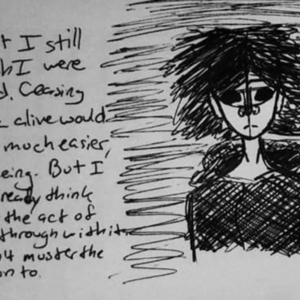 t I still
h I were
d. Ceasing
alive would
much easier,
eing. But I
ready think
the act of
through with it.
muster the
on to.